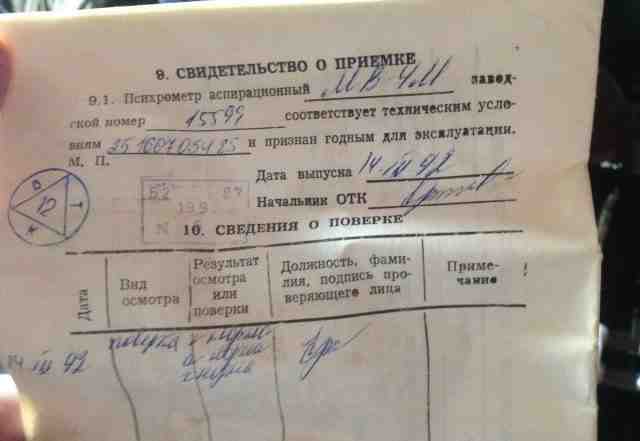 9. СВИДЕТЕЛЬСТВО О ПРИЕМКЕ
9.1. Психрометр аспирационный МВ-4М завод-
ской номер 15599 соответствует техническим усло-
виям 25 1607.054 85 и признан годным для эксплуатации.
М. П.
Дата выпуска 14 III 92
Начальник ОТК
О Т К
12
52
199
N
10. СВЕДЕНИЯ О ПОВЕРКЕ
Дата
Вид
осмотра
Результат
осмотра
или
поверки
Должность, фами-
лия, подпись про-
веряющего лица
Приме-
чание
14 III 92
поверка